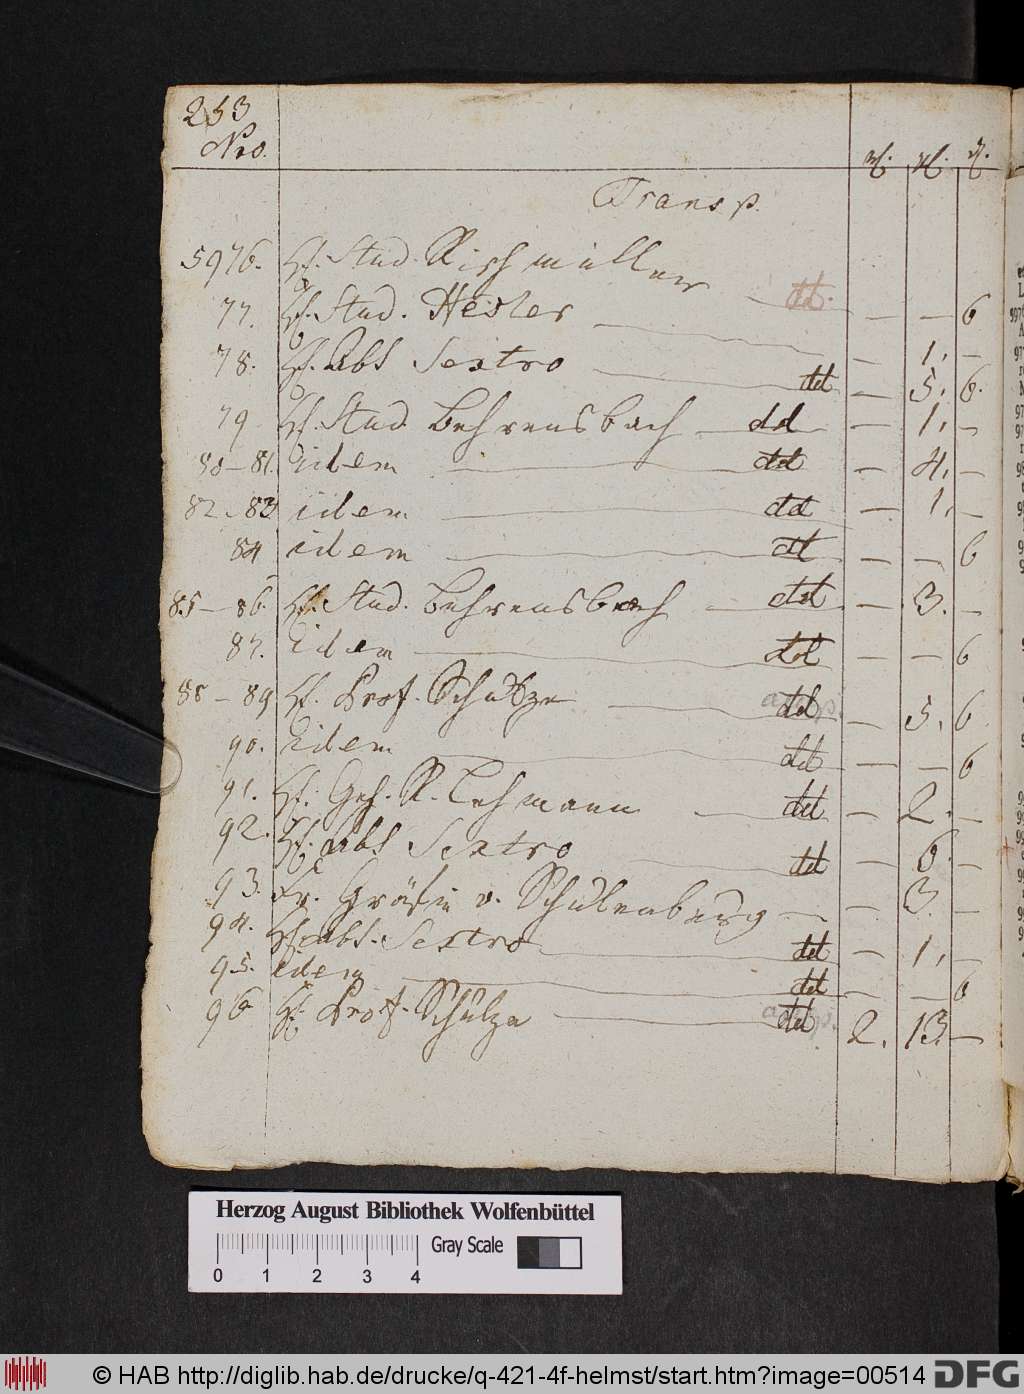 253
Nro.
Transp.
5976. H. Stud. Rischmüller dd. — — 6
77. H. Stud. Hesler — 1. —
78. H. Abt Sextro dd — 5. 6.
79 H. Stud. Behrensbach dd — 1. —
80–81. idem dd — 4. —
82–83 idem dd — 1. —
84 idem dd — — 6
85–86. H. Stud. Behrensbach dd — 3. —
87. idem dd — — 6
88–89 H. Prof. Schulze dd — 5. 6
90. idem dd — — 6
91. H. Geh. R. Lehmann dd — 2. —
92. H. Abt Sextro dd — 6. —
93. Fr. Gräfin v. Schulenburg — — 3. —
94. H. Abt. Sextro dd — 1. —
95. idem dd — — 6
96 H. Prof. Schulze dd 2. 13. —
Herzog August Bibliothek Wolfenbüttel
Gray Scale
0 1 2 3 4
© HAB http://diglib.hab.de/drucke/q-421-4f-helmst/start.htm?image=00514 DFG